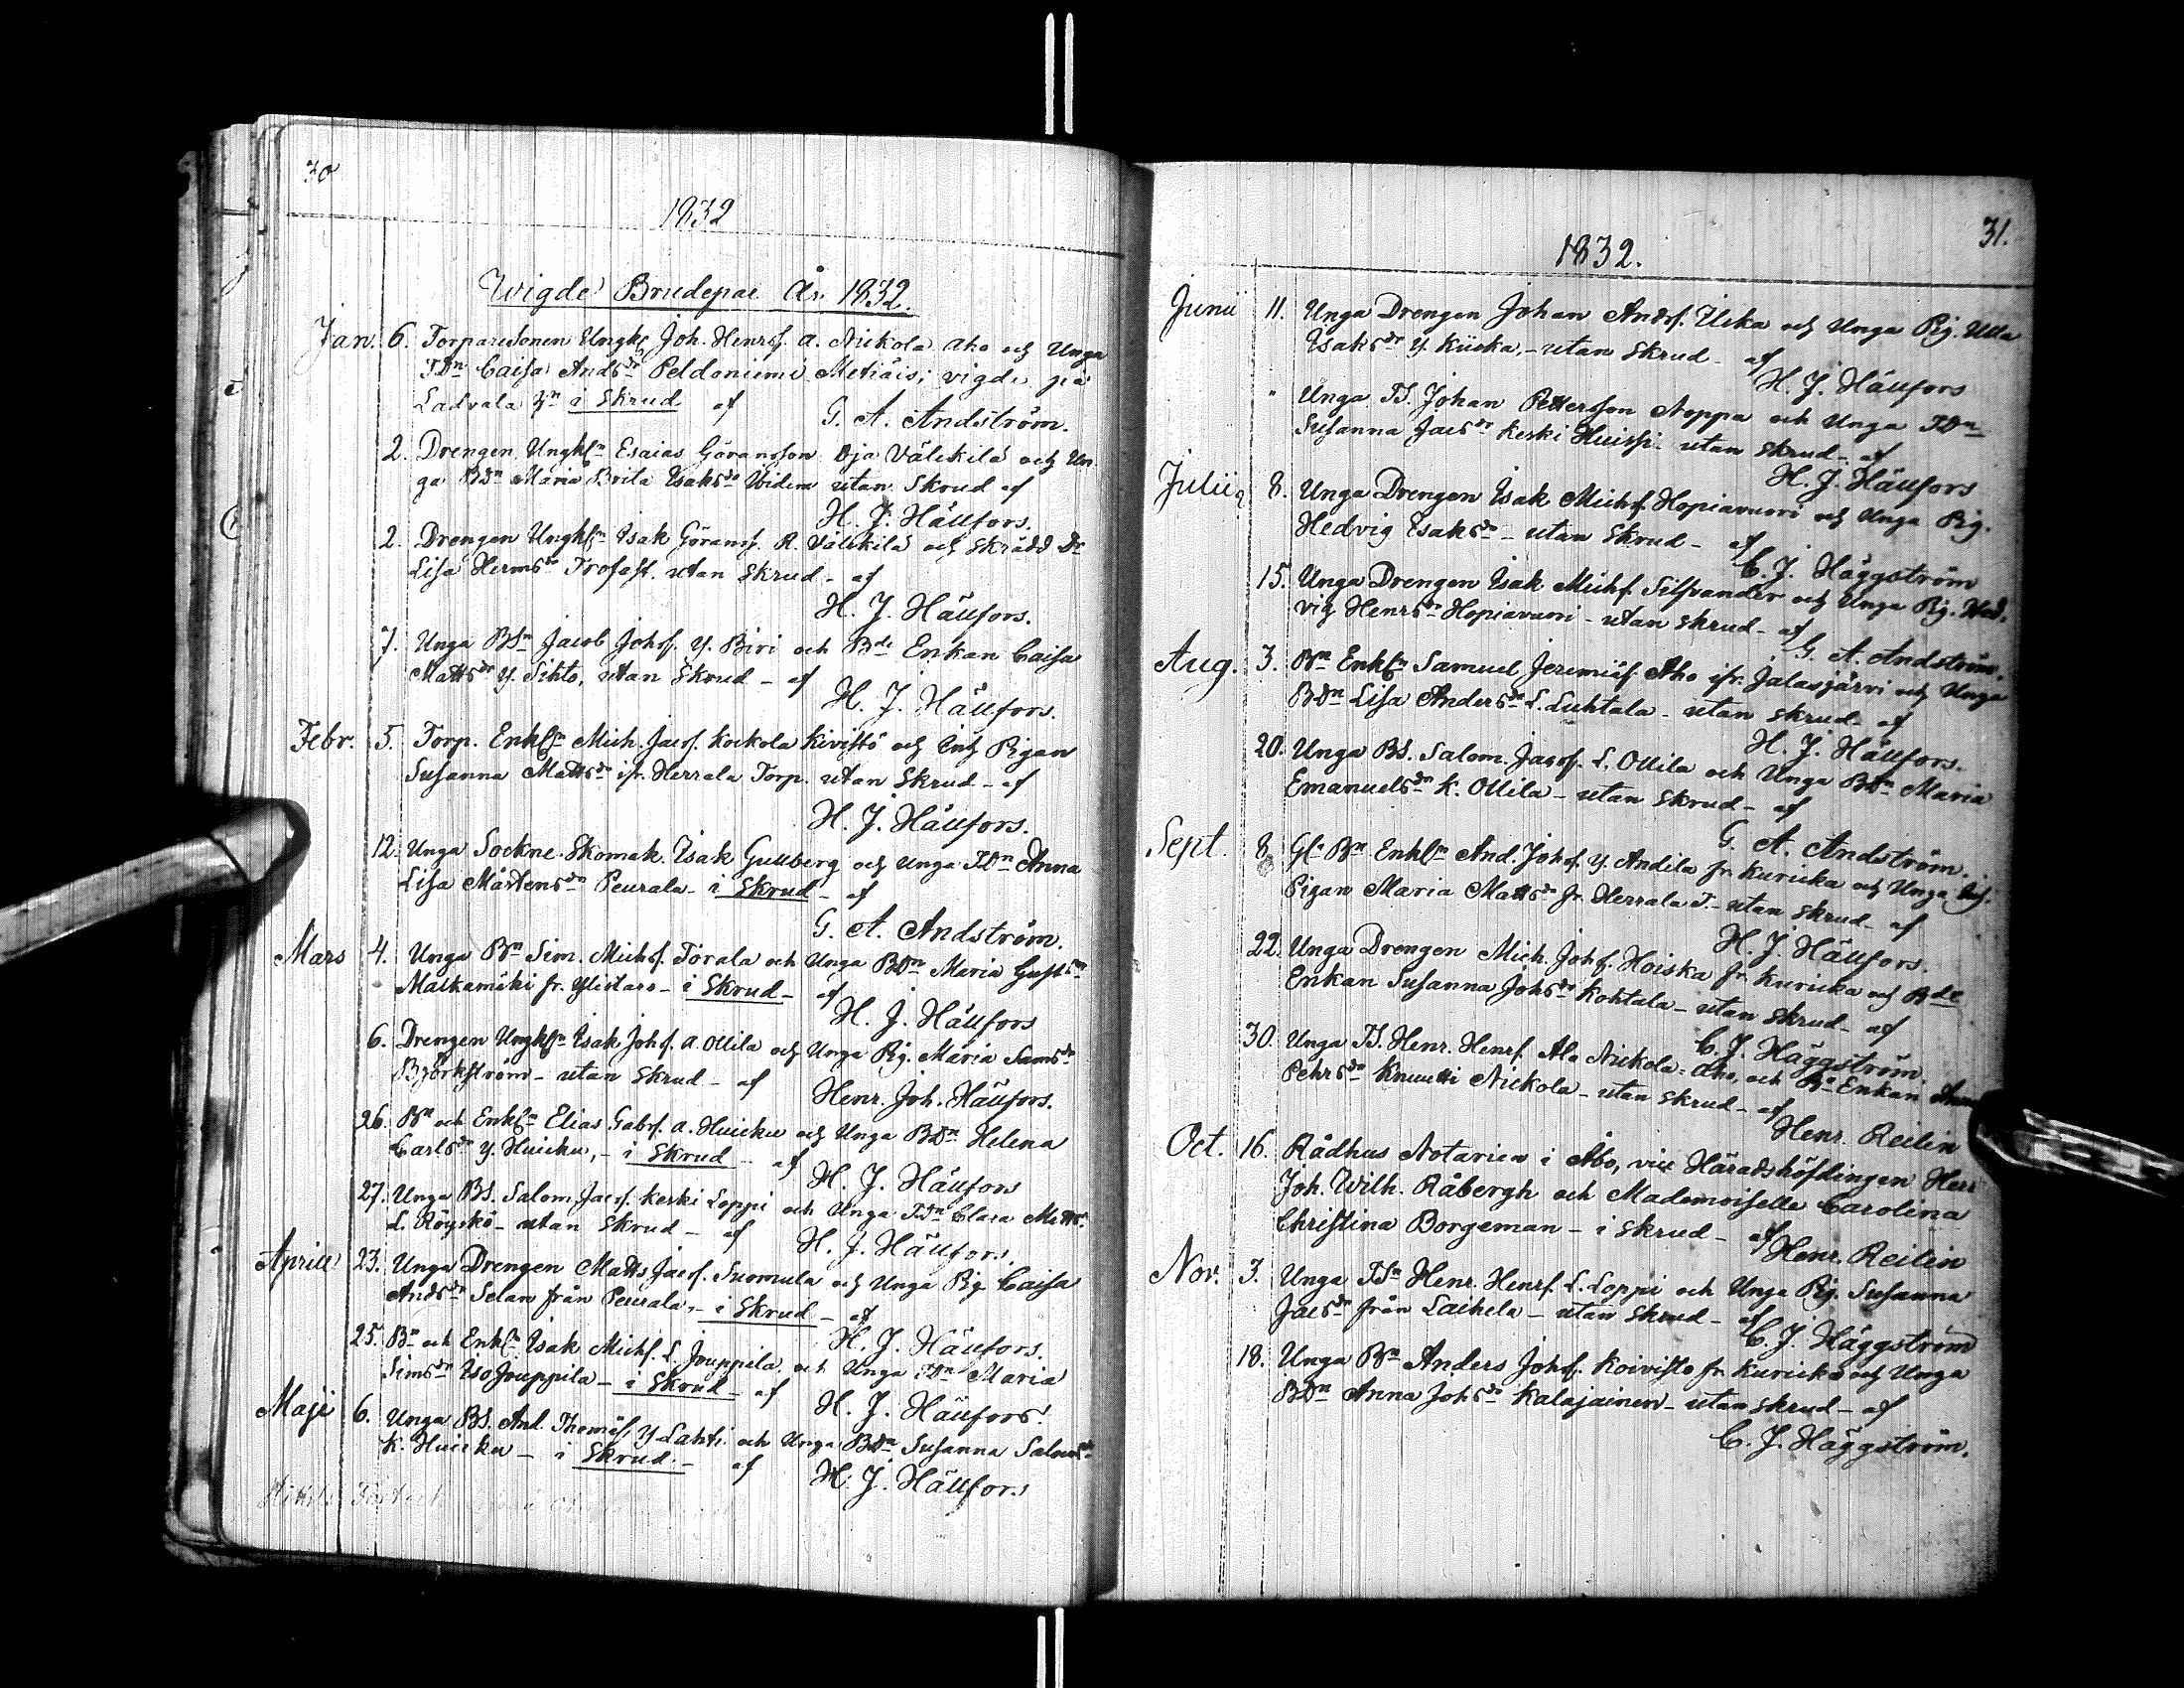 30
1832
Wigde Brudepar År 1832.
Jan. 6. Torparesonen Ungk. Joh. Henrsf. a. Nickola Aho och Unga
TDn Caisa Andsdr Peldoniemi Metiäis; vigde på
Ladvala Yn i Skrud af
G. A. Andström.
2. Drengen Ungkln Esaias Göransson Oja Välekilä och Un
ga BDn Maria Brita Isaksdr Widem utan Skrud af
H. J. Hällfors.
2. Drengen Ungkln Isak Göransf. R. Välekilä och Skrädd Dr
Lisa Hermsdr Trofast. utan Skrud - af
H. J. Hällfors.
7. Unga BSn Jacob Johsf. Y. Biri och Bde Enkan Caisa
Mattsdr Y. Sihto, utan Skrud - af
H. J. Hällfors.
Febr. 5. Torp. Enkln Mich. Jacsf. Kockola Kivistö och Inh Pigan
Susanna Mattsdr ifr. Herrala Torp. utan Skrud - af
H. J. Hällfors.
12. Unga Sockne Skomak. Isak Gullberg och Unga TDn Anna
Lisa Mårtensdr Peurala - i Skrud - af
G. A. Andström.
Mars 4. Unga Bn Sim. Michsf. Törala och Unga BDn Maria Gustsdr
Malkamäki fr. Ylistaro - i Skrud - af
H. J. Hällfors
6. Drengen Ungkln Isak Johsf. a. Ollila och Unga Pig. Maria Samsdr
Björkström - utan Skrud - af
Henr. Joh. Hällfors.
26. Bn och Enkln Elias Gabsf. a. Huicku och Unga BDn Helena
Carlsdr Y. Huicku, - i Skrud - af
H. J. Hällfors
27. Unga BS. Salom. Jacsf. Keski Loppi och Unga TDn Clara Mattsdr
L. Röyskö - utan Skrud - af
H. J. Hällfors.
Aprill 23. Unga Drengen Matts Jacsf. Suomula och Unga Pig Caisa
Andsdr Selan från Peurala, - i Skrud - af
H. J. Hällfors.
25. Bn och Enkln Isak Michsf. L. Jouppila och Unga TDn Maria
Simsdr Iso Jouppila - i Skrud - af
H. J. Hällfors.
Maji 6. Unga BS. And. Thomasf. Y Lahti och Unga BDn Susanna Salomsdr
K. Huicku - i Skrud - af
H. J. Hällfors
31.
1832.
Junii 11. Unga Drengen Johan Andsf. Uska och Unga Pig. Ulla
Isaksdr Y. Kiicka, - utan Skrud - af
H. J. Hällfors
" Unga TS. Johan Pettersson Noppa och Unga TDn
Susanna Jacsdr Keski Huissi - utan Skrud - af
H. J. Hällfors
Julii 8. Unga Drengen Isak Michsf. Hopiavuori och Unga Pig.
Hedvig Isaksdr - utan Skrud - af
C. J. Häggström
15. Unga Drengen Isak Michsf. Silfvander och Unga Pig. Hed,
vig Henrsdr Hopiavuori - utan Skrud - af
G. A. Andström.
Aug. 3. Bn Enkln Samuel Jeremiäsf. Aho ifr. Jalasjärvi och Unga
BDn Lisa Andersdr L. Luhtala - utan Skrud - af
H. J. Hällfors.
20. Unga BS. Salom. Jacosf. L. Ollila och Unga BDn Maria
Emanuelsdr K. Ollila - utan Skrud - af
G. A. Andström.
Sept. 8. Gle Bn Enkln And. Johsf. Y. Andila fr. Kuricka och Unga
Pigan Maria Mattsdr fr. Herrala T. - utan Skrud - af
H. J. Hällfors.
22. Unga Drengen Mich. Johsf. Hoiska fr. Kuricka och Bde
Enkan Susanna Johsdr Kohtala - utan Skrud - af
C. J. Häggström.
30. Unga TS. Henr. Henrsf. Ala Nickola-Aho, och Bn Enkan
Pehrsdr Knuutti Nickola - utan Skrud - af
Henr. Reilin
Oct. 16. Rådhus Notarien i Åbo, vice Häradshöfdingen Herr
Joh. Wilh. Råbergh och Mademoiselle Carolina
Christina Borgeman - i skrud - af
Henr. Reilin
Nov. 3. Unga TSn Henr. Henrsf. L. Loppi och Unga Pig. Susanna
Jacsdr från Laihela - utan Skrud - af
C. J. Häggström
18. Unga Bn Anders Johsf. Koivisto fr. Kuricka och Unga
BDn Anna Johsdr Kalajainen - utan Skrud - af
C. J. Häggström.